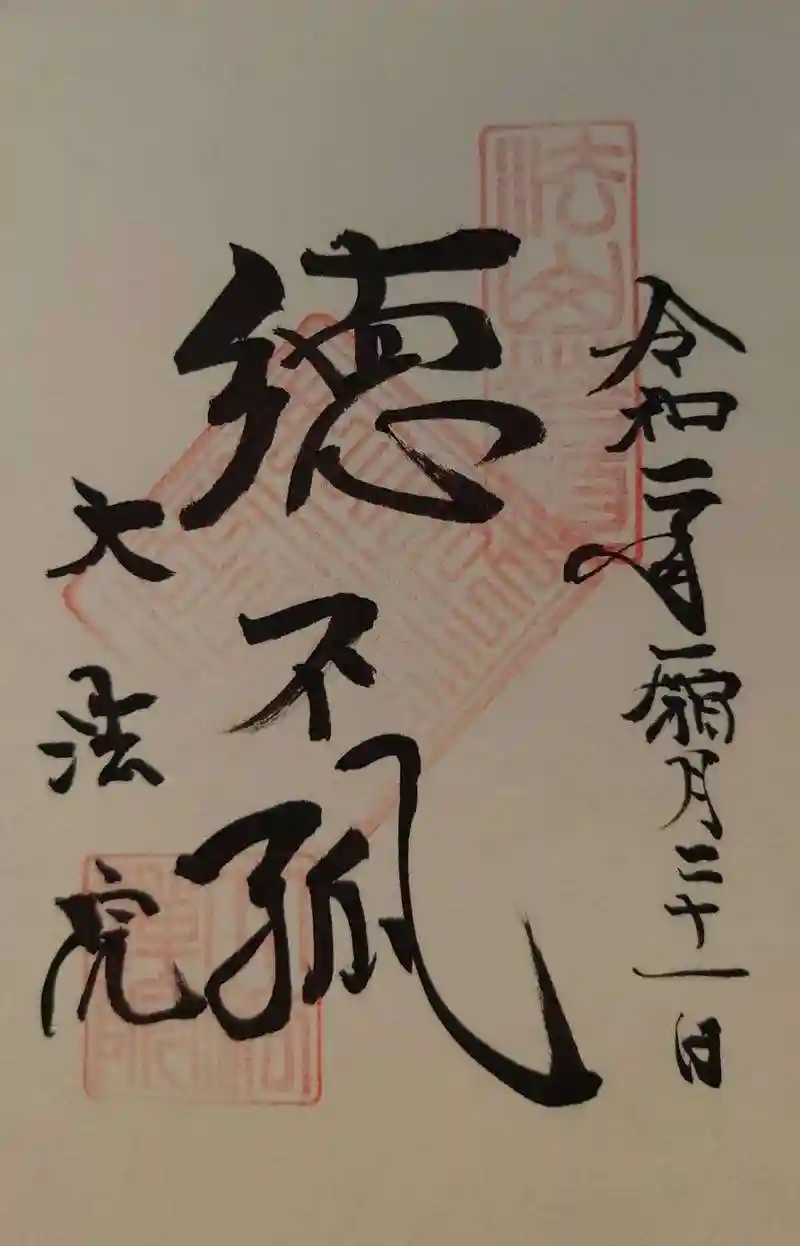 令和二年霜月二十一日
徳不孤
大法院